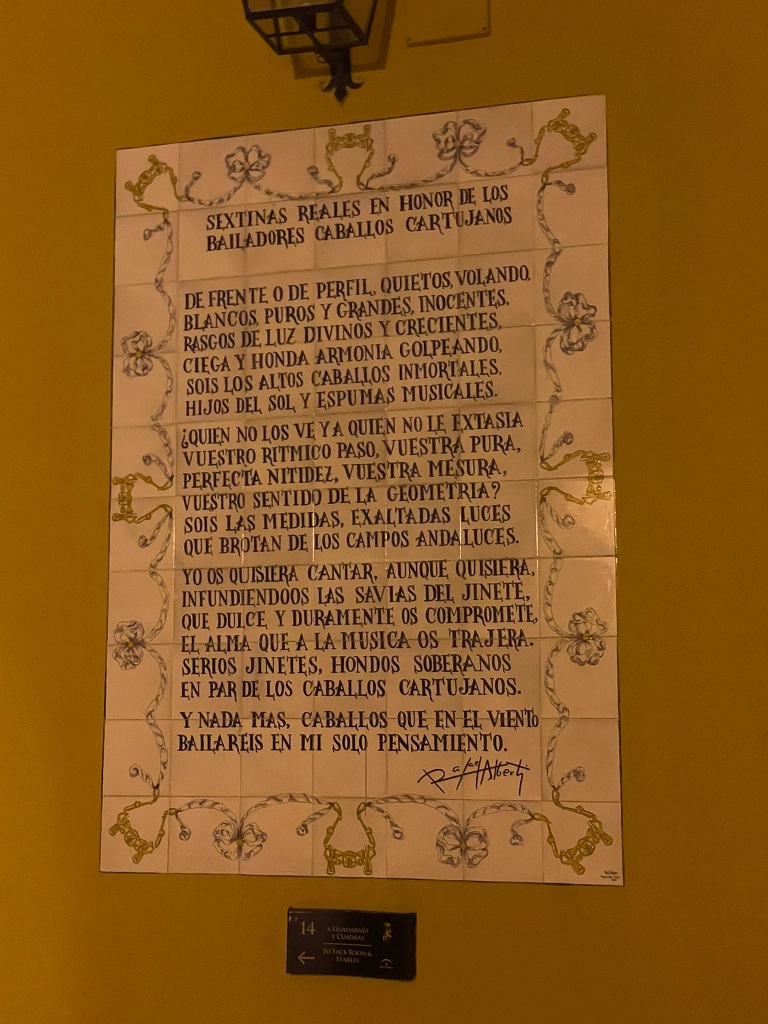 SEXTINAS REALES EN HONOR DE LOS
BAILADORES CABALLOS CARTUJANOS
DE FRENTE O DE PERFIL, QUIETOS, VOLANDO,
BLANCOS, PUROS Y GRANDES, INOCENTES,
RASGOS DE LUZ DIVINOS Y CRECIENTES,
CIEGA Y HONDA ARMONIA GOLPEANDO,
SOIS LOS ALTOS CABALLOS INMORTALES,
HIJOS DEL SOL Y ESPUMAS MUSICALES.
¿QUIEN NO LOS VE Y A QUIEN NO LE EXTASIA
VUESTRO RITMICO PASO, VUESTRA PURA,
PERFECTA NITIDEZ, VUESTRA MESURA,
VUESTRO SENTIDO DE LA GEOMETRIA?
SOIS LAS MEDIDAS, EXALTADAS LUCES
QUE BROTAN DE LOS CAMPOS ANDALUCES.
YO OS QUISIERA CANTAR, AUNQUE QUISIERA,
INFUNDIENDOOS LAS SAVIAS DEL JINETE,
QUE DULCE Y DURAMENTE OS COMPROMETE,
EL ALMA QUE A LA MUSICA OS TRAJERA.
SERIOS JINETES, HONDOS SOBERANOS
EN PAR DE LOS CABALLOS CARTUJANOS.
Y NADA MAS, CABALLOS QUE EN EL VIENTO
BAILAREIS EN MI SOLO PENSAMIENTO.
Rafael Alberti
14
A GUADARNES
Y CUADRAS
TO TACK ROOM &
STABLES